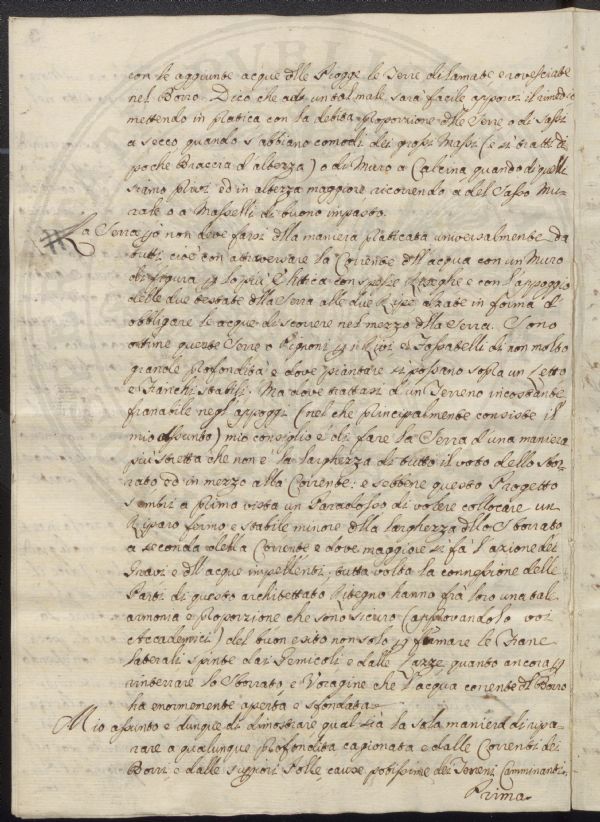 con le aggiunte acque dlle Piogge le Terre dilamate e rovesciate
nel Borro. Dico che ad un tal male sarà facile apporvi il rimedio
mettendo in platica con la debita proporzione dlle Serre o di Sassi
a secco quando s'abbiano comodi dei grossi Massi (e si tratti di
poche Braccia d'altezza) o di Muro a Calcina quando di quelli
siamo privi ed in altezza maggiore ricorrendo a del Sasso Mu-
rale o a Masselli di buono impasto.
La Serra pò non deve farsi dlla maniera platicata universalmente da
tutti cioè con attraversare la Corrente dll'acqua con un Muro
di figura p lo più Elittica con spesse Pieghe e con l'appoggio
delle due testate dlla Serra alle due Ripe alzate in forma d'
obbligare le acque di scorrere nel mezzo dlla Serra. Sono
ottime queste Serre o Pignoni p i Rivi e Fossatelli di non molto
grande profondità e dove piantare si possano sopra un Letto
e Fianchi stabili. Ma dove trattasi d'un Terreno incostante
franabile negl'appoggi (nel che principalmente consiste il
mio Assunto) mio consiglio è di fare la Serra d'una maniera
più stretta che non è la larghezza di tutto il voto dello Sbor-
rato ed in mezzo alla Corrente: e sebbene questo Progetto
sembri a prima vista un Paradosso di volere collocare un
Riparo fermo e stabile minore dlla larghezza dllo Sborrato
a seconda della Corrente e dove maggiore si fà l'azione dei
Gravi e dll'acque impellenti, tutta volta la connessione delle
Parti di questo architettato Ritegno hanno frà loro una tale
armonia e proporzione che sono sicuro (approvandolo voi
Accademici) del buon esito non solo p fermare le Frane
laterali spinte dai Gemicoli e dalle Pazze, quanto ancora p
rinterrare lo Sborrato, e Voragine che l'acqua corrente dl Borro
ha enormemente aperta e sfondata.
Mio assunto è dunque di dimostrare qual sia la sola maniera di ripa-
rare a qualunque profondità cagionata e dalle Correnti dei
Borri e dalle sugnori Polle, cause potissime dei Terreni Camminanti.
Prima